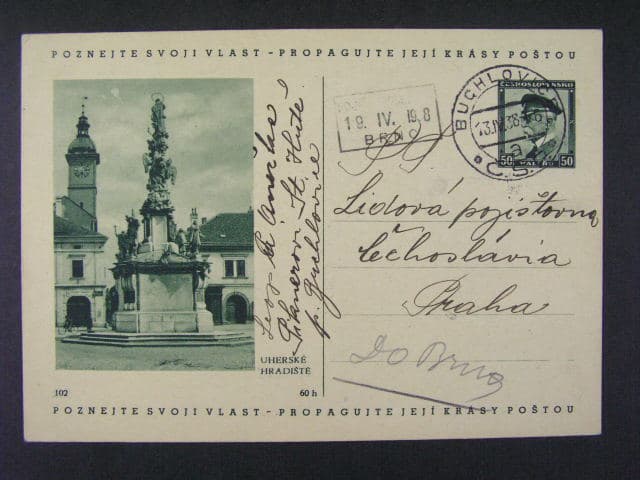 POZNEJTE SVOJI VLAST - PROPAGUJTE JEJÍ KRÁSY POŠTOU
19. IV. 1938
BRNO
BUCHLOVICE
13.IV.38
a
Č.S.R.
ČESKOSLOVENSKO
50 HALÉŘŮ 50
Lidová pojišťovna
Čechoslávia
Praha
Do Brna
St. Hutě
p. Buchlovice
UHERSKÉ
HRADIŠTĚ
102
60 h
POZNEJTE SVOJI VLAST - PROPAGUJTE JEJÍ KRÁSY POŠTOU